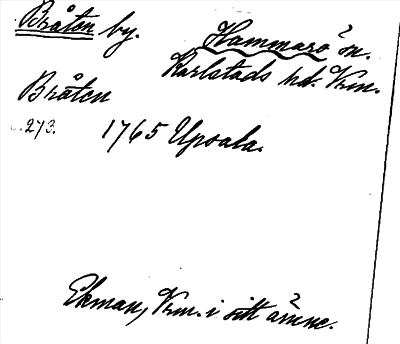 Bråten by. Hammarö sn.
Karlstads hd. Vrm.
Bråten
273. 1765 Upsala.
Ekman, Vrm. i sitt ämne.